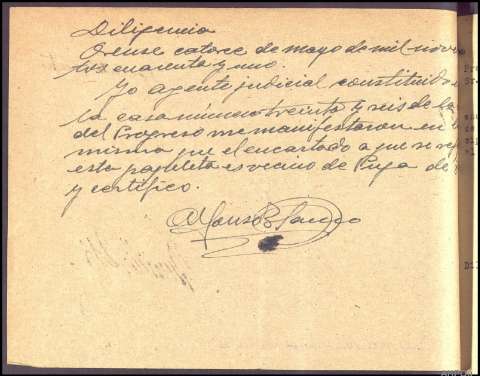 Diligencia
Orense catorce de mayo de mil nove
tos cuarenta y uno.
Yo agente judicial constituido
la casa número treinta y seis de la
del Progreso me manifestaron en la
misma que el encartado a que se ref
esta papeleta es vecino de Puga de
y certifico.
Alfonso Blanco